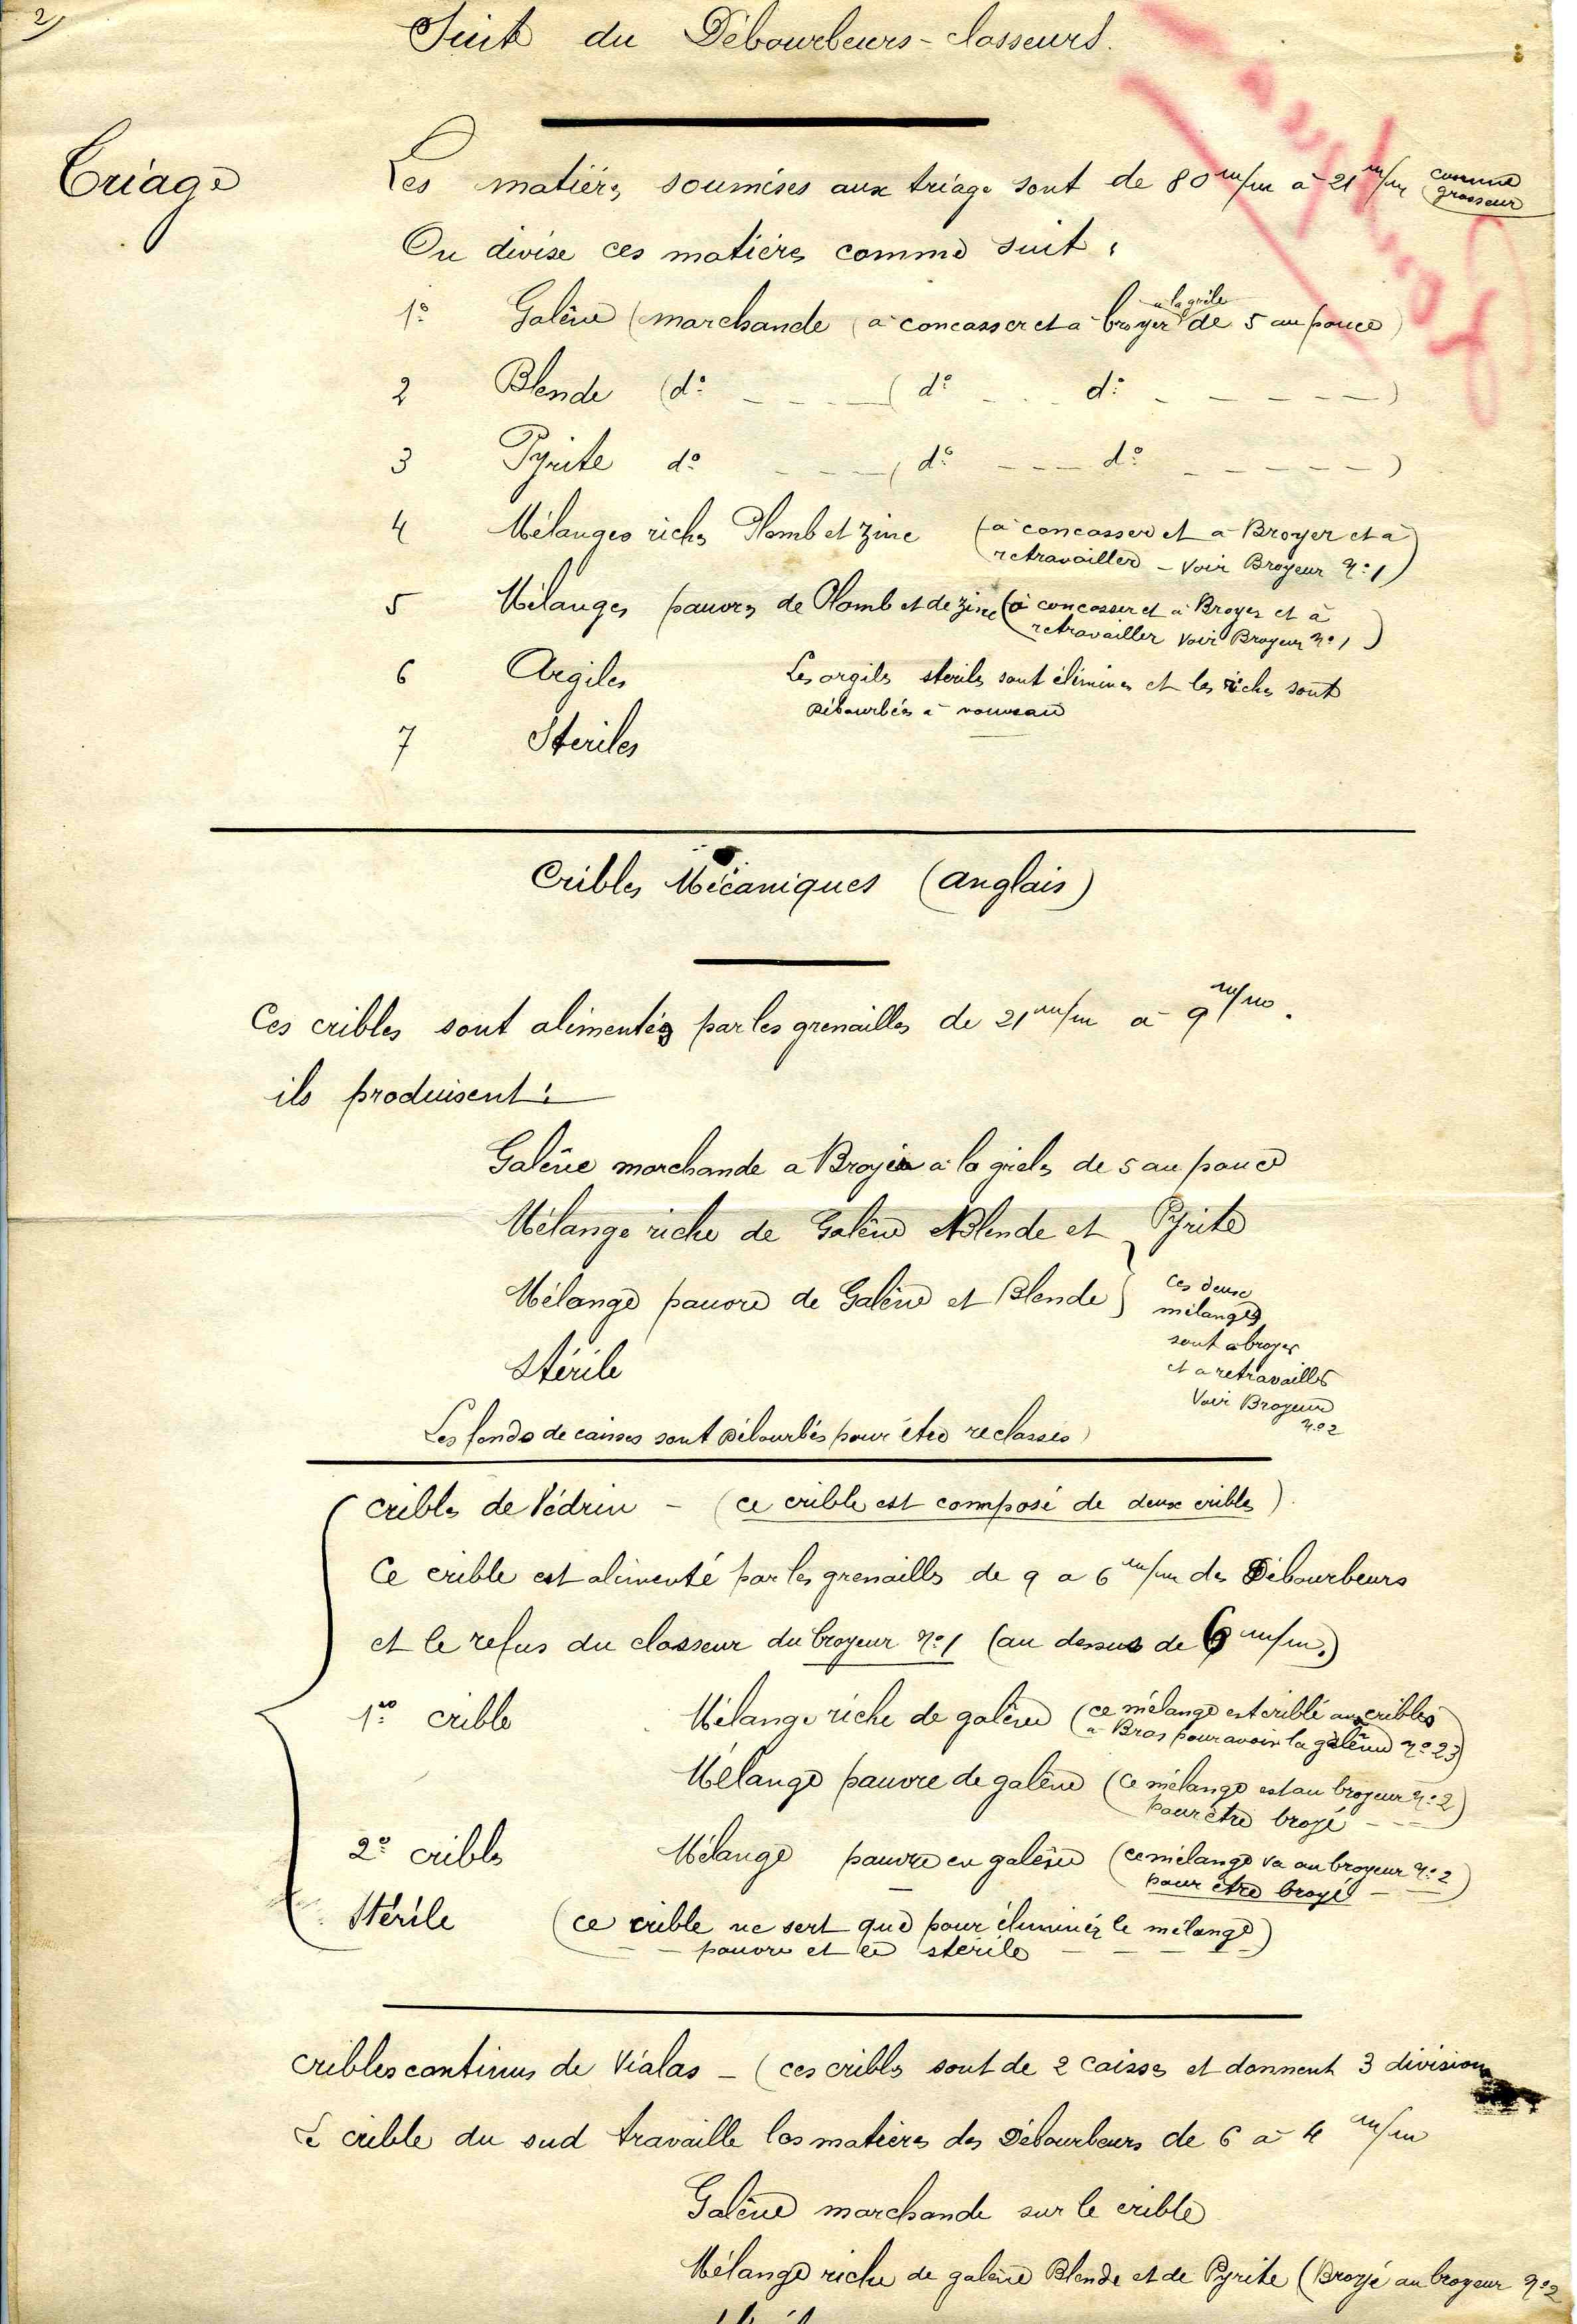 2)
Suite du Débourbeurs-classeurs.
Triage
Les matières soumises aux triage sont de 80 m/m à 21 m/m comme grosseur
On divise ces matières comme suit :
1° Galène (marchande (à concasser et à broyer à la grêle de 5 au pouce)
2 Blende (d° - - - - ( d° - - - d° - - - - - -)
3 Pyrite d° - - - - ( d° - - - d° - - - - - -)
4 Mélanges riches Plomb et zinc (à concasser et à Broyer et à
retravailler - Voir Broyeur N° 1)
5 Mélanges pauvres de Plomb et de zinc (à concasser et à Broyer et à
retravailler Voir Broyeur N° 1)
6 Argiles Les argiles stériles sont éliminés et les riches sont
Débourbées à nouveau
7 Stériles
Cribles Mécaniques (anglais)
Ces cribles sont alimentés par les grenailles de 21 m/m à 9 m/m.
ils produisent :
Galène marchande a Broyer à la grêle de 5 au pouce
Mélange riche de Galène Blende et Pyrite
Mélange pauvre de Galène et Blende } ces deux
mélanges
sont a broyer
et a retravailler
Voir Broyeur
N° 2
Stérile
Les fonds de caisses sont Débourbés pour être reclassés
cribles de Védrin - (ce crible est composé de deux cribles)
Ce crible est alimenté par les grenailles de 9 a 6 m/m des Débourbeurs
et le refus du classeur du broyeur N° 1 (au dessus de 6 m/m.)
1er crible Mélange riche de galène (ce mélange est criblé aux cribles
à Bras pour avoir la galène N° 23)
Mélange pauvre de galène (ce mélange est au broyeur N° 2
pour être broyé - - -)
2e crible Mélange pauvre en galène (ce mélange va au broyeur N° 2
pour être broyé - -)
Stérile (ce crible ne sert que pour éliminer le mélange
pauvre et le stérile - - - -)
Cribles continus de Vialas - (ces cribles sont de 2 caisses et donnent 3 divisions
Le crible du sud travaille les matières des Débourbeurs de 6 à 4 m/m
Galène marchande sur le crible
Mélange riche de galène Blende et de Pyrite (Broyé au broyeur N° 2